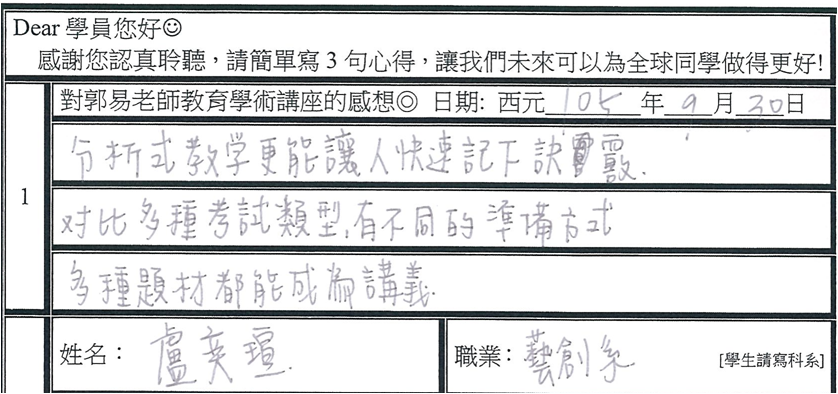 Dear 學員您好☺
感謝您認真聆聽，請簡單寫 3 句心得，讓我們未來可以為全球同學做得更好!
對郭易老師教育學術講座的感想◎ 日期: 西元 105 年 9 月 30 日
1
分析式教学更能讓人快速記下訣竅.
对比多種考試類型,有不同的準備方式
多種題材都能成為講義.
姓名： 盧奕瑄.
職業: 藝創系 [學生請寫科系]